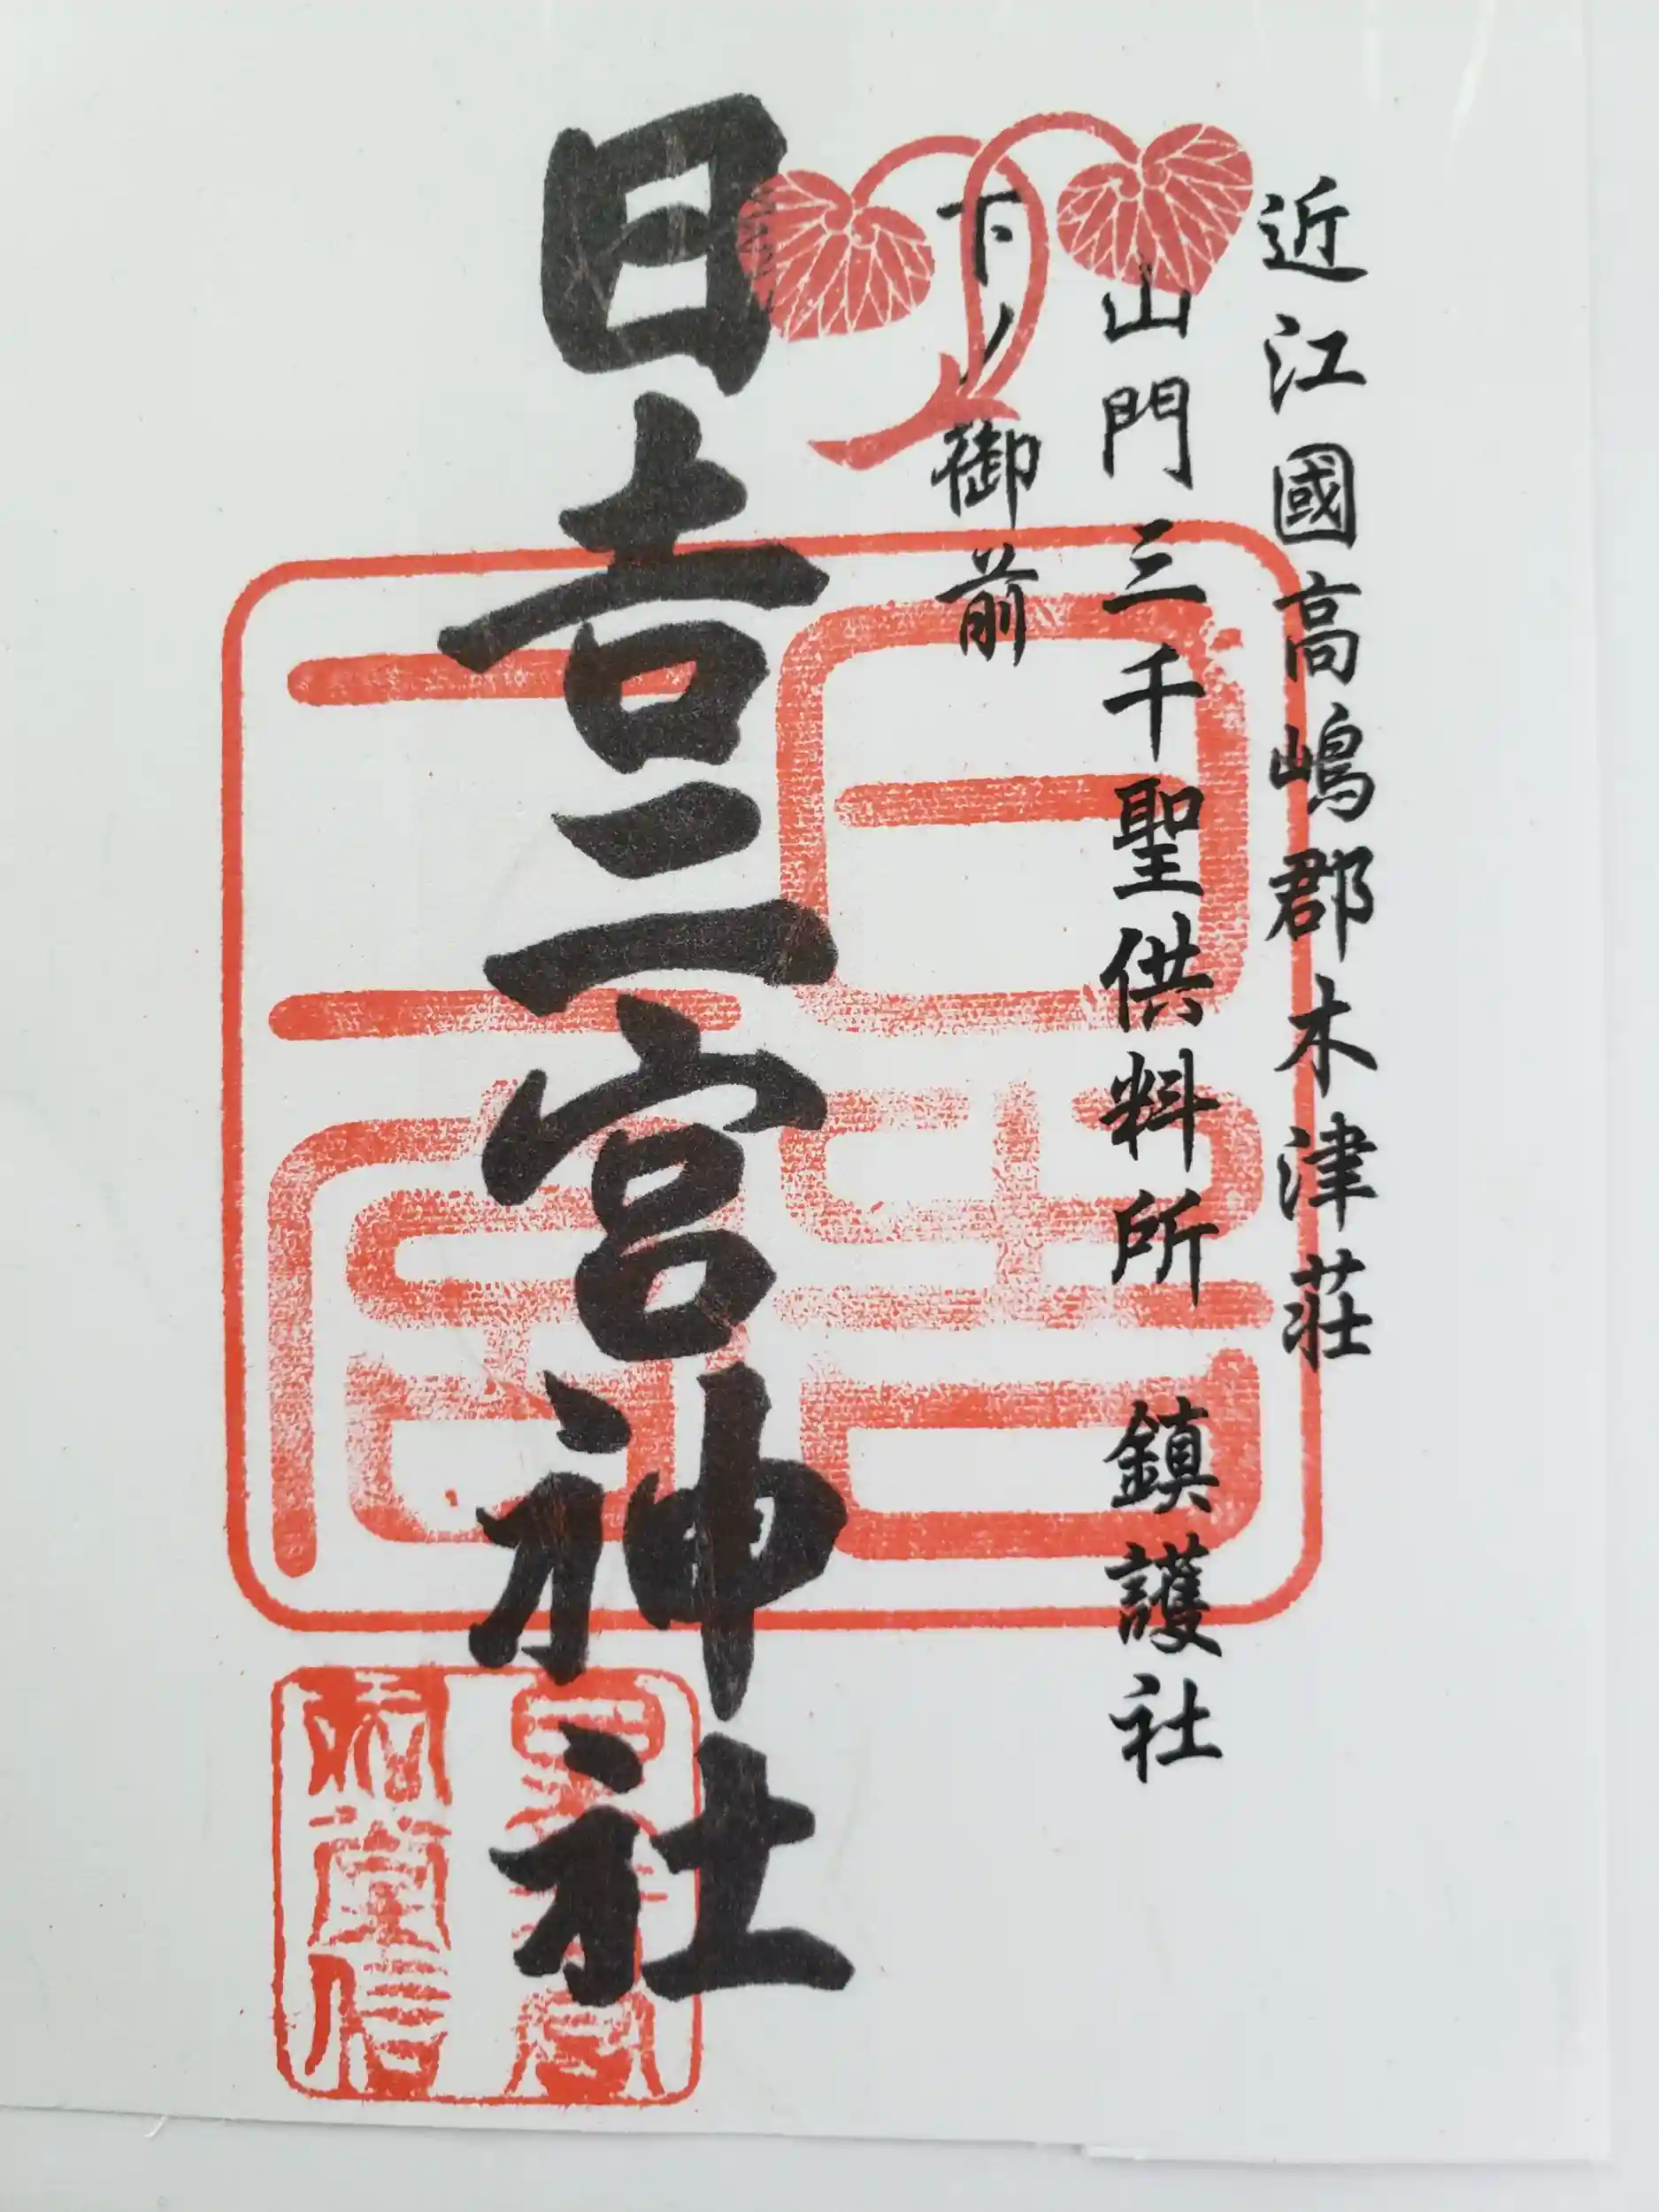 近江國高嶋郡木津荘
山門三千聖供料所 鎮護社
下ノ御前
日吉二宮神社
日吉二宮